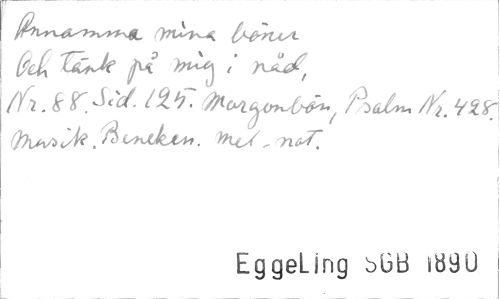 Annamma mina böner
Och tänk på mig i nåd,
Nr. 88. Sid. 125. Morgonbön, Psalm Nr. 428.
Musik. Beneken. mel-not.
EggeLing SGB 1890